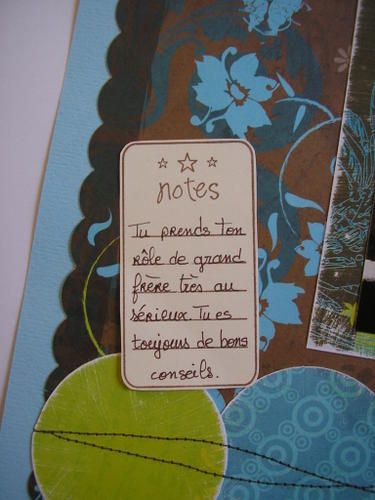 notes
Tu prends ton
rôle de grand
frère très au
sérieux. Tu es
toujours de bons
conseils.